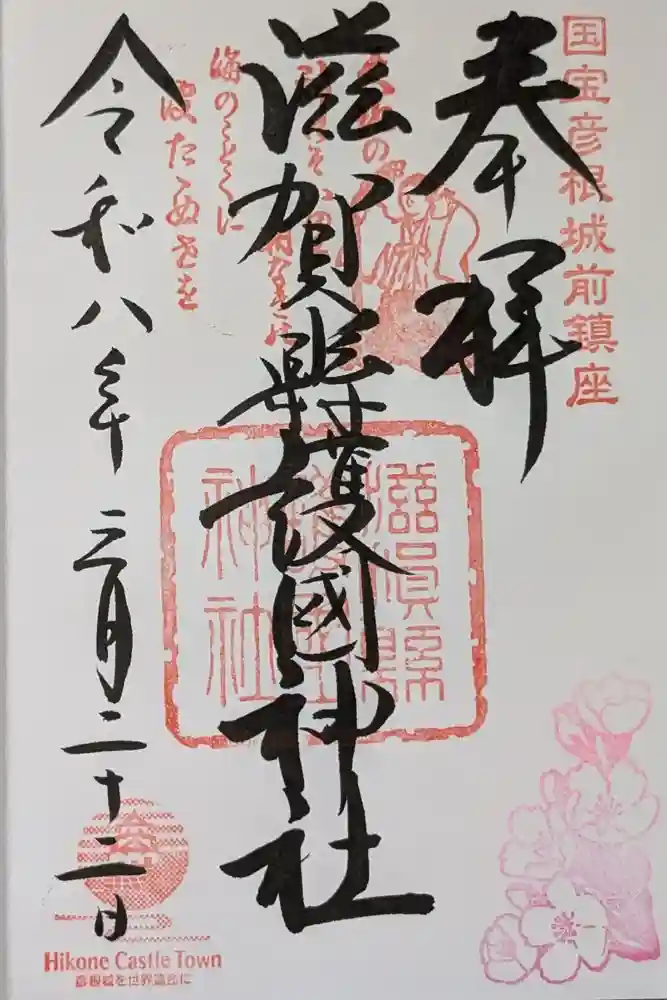 国宝彦根城前鎮座
奉拝
滋賀縣護國神社
滋賀縣
護國
神社
海のことくに
令和八年三月二十二日
Hikone Castle Town
彦根城を世界遺産に